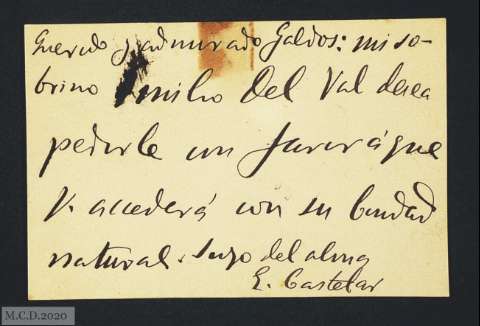 Querido y admirado Galdos: mi so-
brino Emilio del Val desea
pedirle un favor á que
V. accederá con su bondad
natural. Suyo del alma
E. Castelar
M.C.D.2020